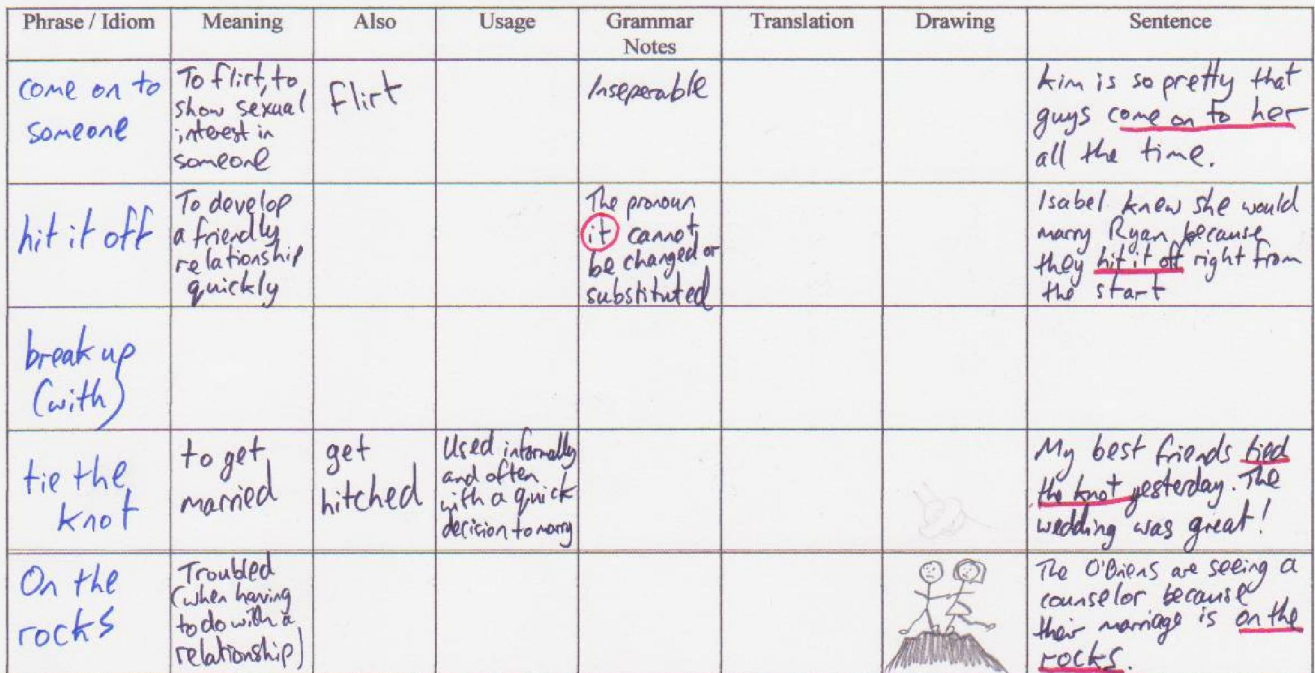 Phrase / Idiom Meaning Also Usage Grammar Notes Translation Drawing Sentence
come on to
someone
To flirt, to
show sexual
interest in
someone
flirt
Inseperable
Kim is so pretty that
guys come on to her
all the time.
hit it off
To develop
a friendly
relationship
quickly
The pronoun
it cannot
be changed or
substituted
Isabel knew she would
marry Ryan because
they hit it off right from
the start
break up
(with)
tie the
knot
to get
married
get
hitched
Used informally
and often
with a quick
decision to marry
My best friends tied
the knot yesterday. The
wedding was great!
On the
rocks
Troubled
(when having
to do with a
relationship)
The O'Briens are seeing a
counselor because
their marriage is on the
rocks.